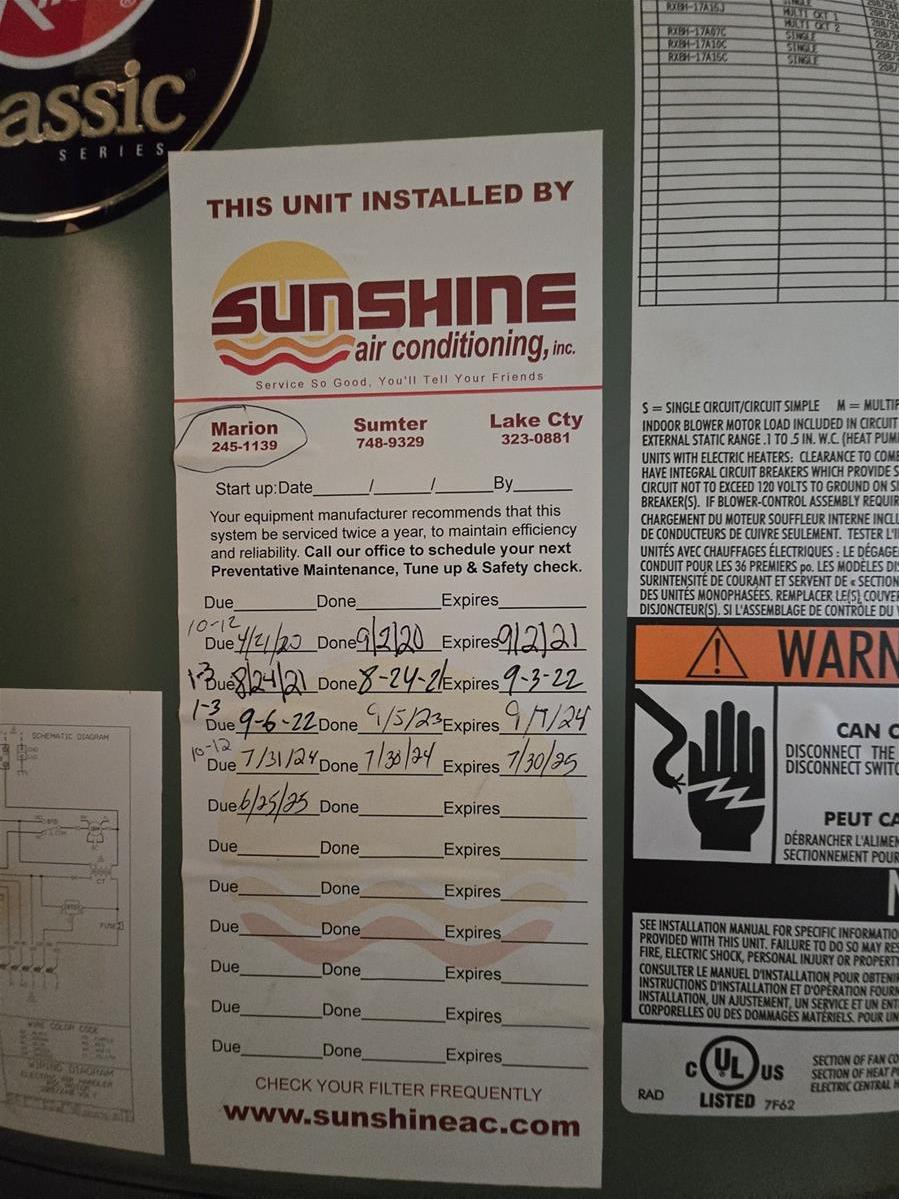 assic
SERIES
RXBH-17A15J
SINGLE
MULTI CKT 1
MULTI CKT 2
RXBH-17A07C SINGLE
RXBH-17A10C SINGLE
RXBH-17A15C SINGLE
THIS UNIT INSTALLED BY
SUNSHINE
air conditioning, inc.
Service So Good, You'll Tell Your Friends
Marion Sumter Lake Cty
245-1139 748-9329 323-0881
Start up:Date____/____/____By____
Your equipment manufacturer recommends that this
system be serviced twice a year, to maintain efficiency
and reliability. Call our office to schedule your next
Preventative Maintenance, Tune up & Safety check.
Due____Done____Expires____
10-12
Due 4/21/20 Done 9/2/20 Expires 9/2/21
1-3 Due 8/24/21 Done 8-24-21 Expires 9-3-22
1-3
Due 9-6-22 Done 9/5/23 Expires 9/7/24
10-12
Due 7/31/24 Done 7/30/24 Expires 7/30/25
Due 6/25/25 Done____Expires____
Due____Done____Expires____
Due____Done____Expires____
Due____Done____Expires____
Due____Done____Expires____
Due____Done____Expires____
Due____Done____Expires____
CHECK YOUR FILTER FREQUENTLY
www.sunshineac.com
S = SINGLE CIRCUIT/CIRCUIT SIMPLE M = MULTIP
INDOOR BLOWER MOTOR LOAD INCLUDED IN CIRCUIT
EXTERNAL STATIC RANGE .1 TO .5 IN. W.C. (HEAT PUM
UNITS WITH ELECTRIC HEATERS: CLEARANCE TO COMB
HAVE INTEGRAL CIRCUIT BREAKERS WHICH PROVIDE S
CIRCUIT NOT TO EXCEED 120 VOLTS TO GROUND ON SI
BREAKER(S). IF BLOWER-CONTROL ASSEMBLY REQUIR
CHARGEMENT DU MOTEUR SOUFFLEUR INTERNE INCL
DE CONDUCTEURS DE CUIVRE SEULEMENT. TESTER L'I
UNITÉS AVEC CHAUFFAGES ÉLECTRIQUES : LE DÉGAGE
CONDUIT POUR LES 36 PREMIERS po. LES MODÈLES DI
SURINTENSITÉ DE COURANT ET SERVENT DE « SECTION
DES UNITÉS MONOPHASÉES. REMPLACER LE(S) COUVE
DISJONCTEUR(S). SI L'ASSEMBLAGE DE CONTRÔLE DU
WARN
CAN C
DISCONNECT THE
DISCONNECT SWITC
PEUT CA
DÉBRANCHER L'ALIMEN
SECTIONNEMENT POUR
SEE INSTALLATION MANUAL FOR SPECIFIC INFORMATIO
PROVIDED WITH THIS UNIT. FAILURE TO DO SO MAY RES
FIRE, ELECTRIC SHOCK, PERSONAL INJURY OR PROPERTY
CONSULTER LE MANUEL D'INSTALLATION POUR OBTENI
INSTRUCTIONS D'INSTALLATION ET D'OPÉRATION FOURN
INSTALLATION, UN AJUSTEMENT, UN SERVICE ET UN ENT
CORPORELLES OU DES DOMMAGES MATÉRIELS. POUR UN
C UL US
LISTED 7F62
RAD
SECTION OF FAN CO
SECTION OF HEAT P
ELECTRIC CENTRAL H
SCHEMATIC DIAGRAM
FUSE
WIRE COLOR CODE
WIRING DIAGRAM